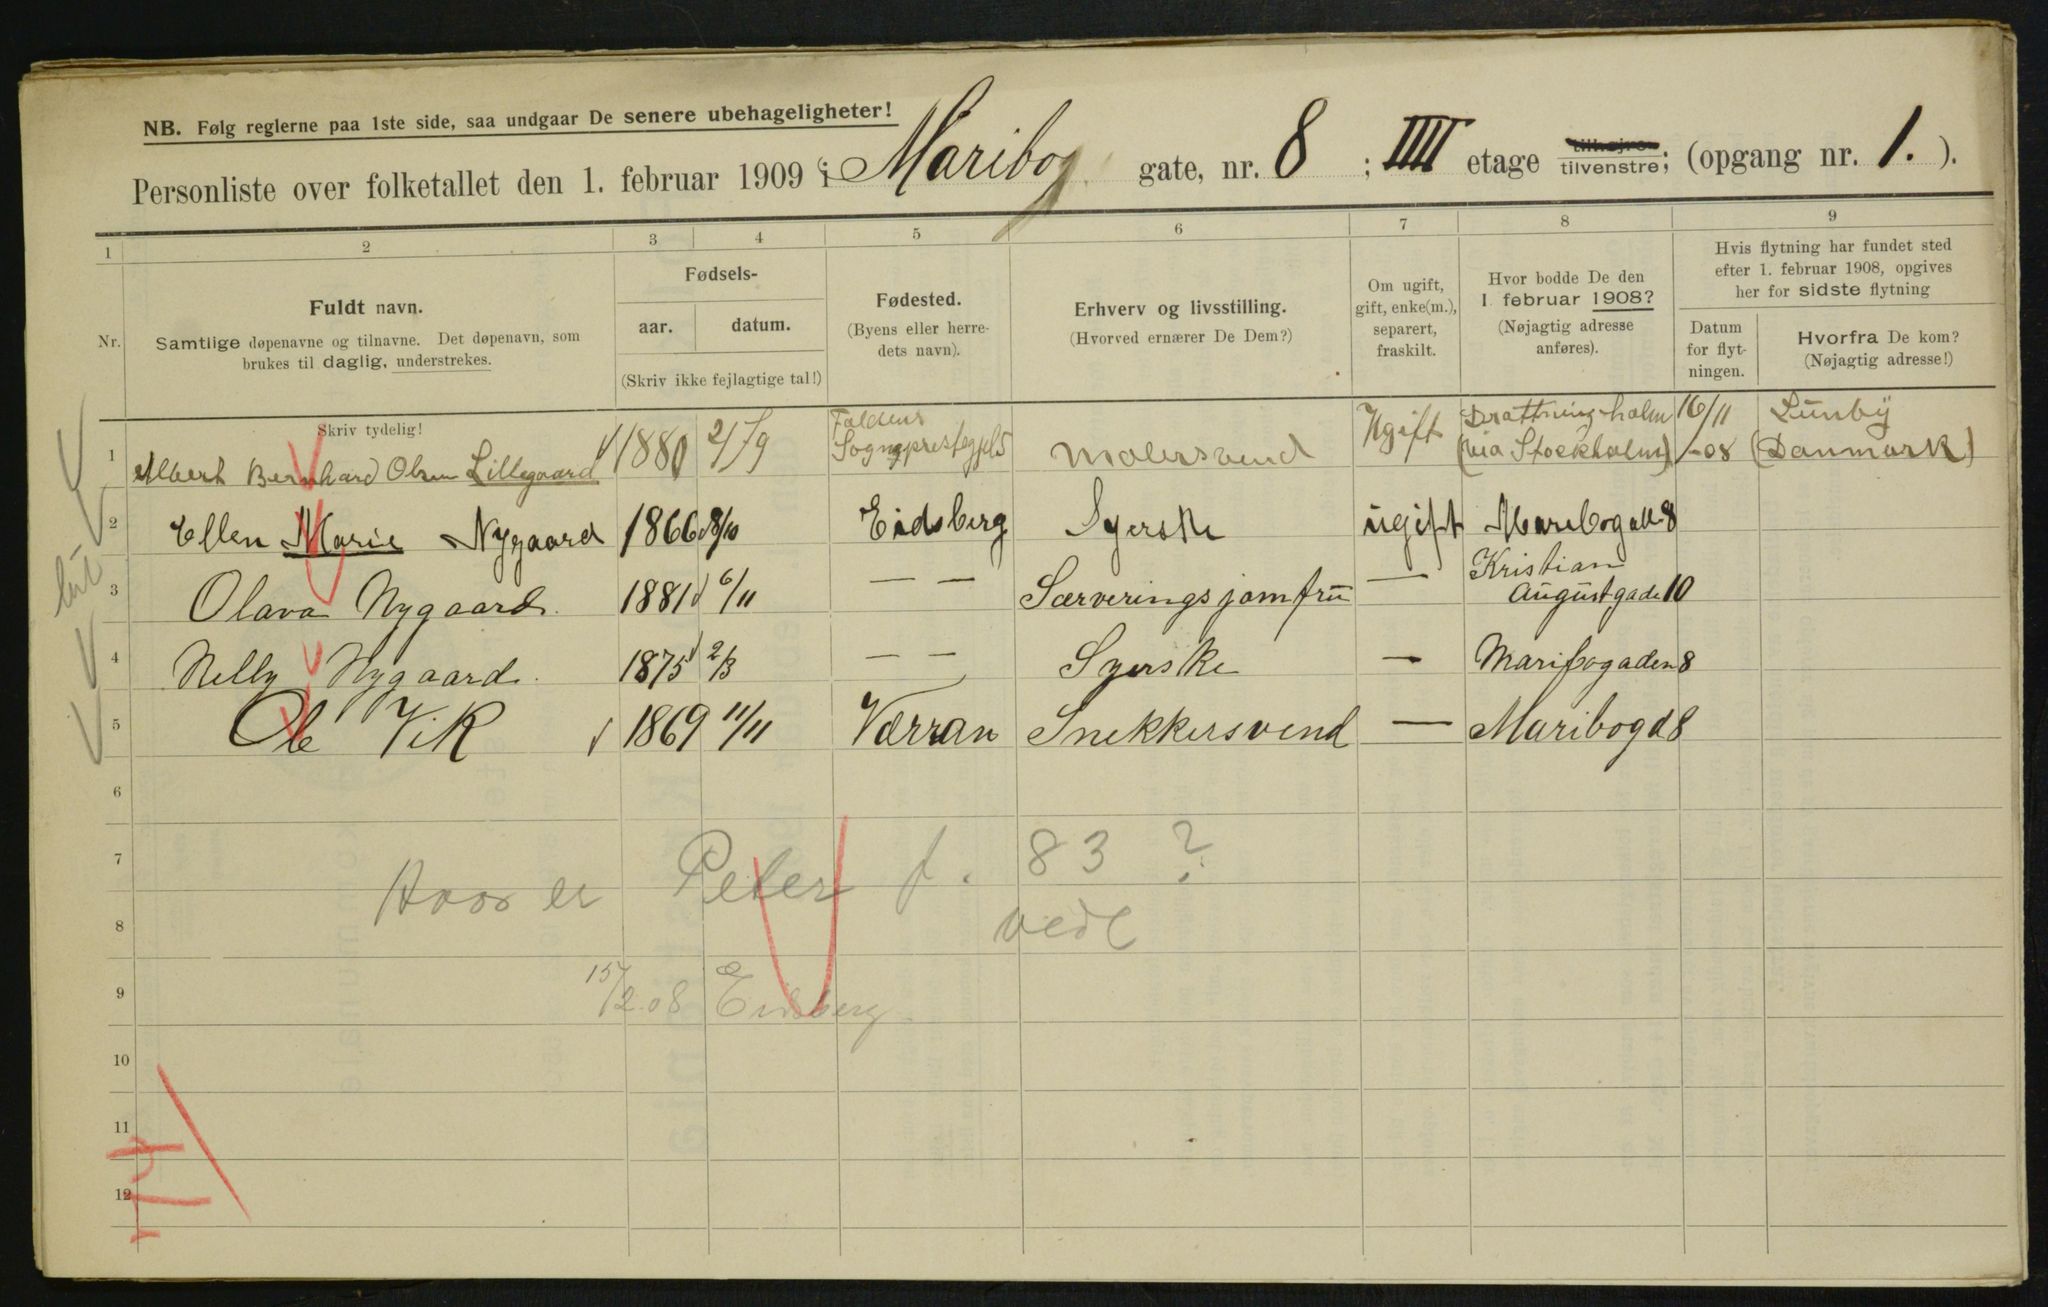 NB. Følg reglerne paa 1ste side, saa undgaar De senere ubehageligheter!
Personliste over folketallet den 1. februar 1909 i Maribog gate, nr. 8 ; IIII etage tilhøjre tilvenstre; (opgang nr. 1. ).
1 2 3 4 5 6 7 8 9
Nr.
Fuldt navn.
Samtlige døpenavne og tilnavne. Det døpenavn, som
brukes til daglig, understrekes.
Fødsels-
aar. datum.
(Skriv ikke fejlagtige tal!)
Fødested.
(Byens eller herre-
dets navn).
Erhverv og livsstilling.
(Hvorved ernærer De Dem?)
Om ugift,
gift, enke(m.),
separert,
fraskilt.
Hvor bodde De den
1. februar 1908?
(Nøjagtig adresse
anføres).
Hvis flytning har fundet sted
efter 1. februar 1908, opgives
her for sidste flytning
Datum
for flyt-
ningen.
Hvorfra De kom?
(Nøjagtig adresse!)
Skriv tydelig!
1 Albert Bernhard Olsen Lillegaard 1880 21/9 Sognsprestegjeld Malersvend Ugift Drottningholm (via Stockholm) 16/11 -08 Lunby (Danmark)
2 Ellen Marie Nygaard 1866 8/10 Eidsberg Syerske ugift Maribogatt 8
3 Olava Nygaard. 1881 6/11 — — Særveringsjomfru — Kristian Augustgade 10
4 Nelly Nygaard. 1875 2/3 — — Syerske — Maribogaden 8
5 Ole Vik 1869 11/11 Værran Snekkersvend — Maribogd 8
6
7 Hvor er Peter f. 83 ?
8 vedl
9 15/2 08 Eidsberg
10
11
12